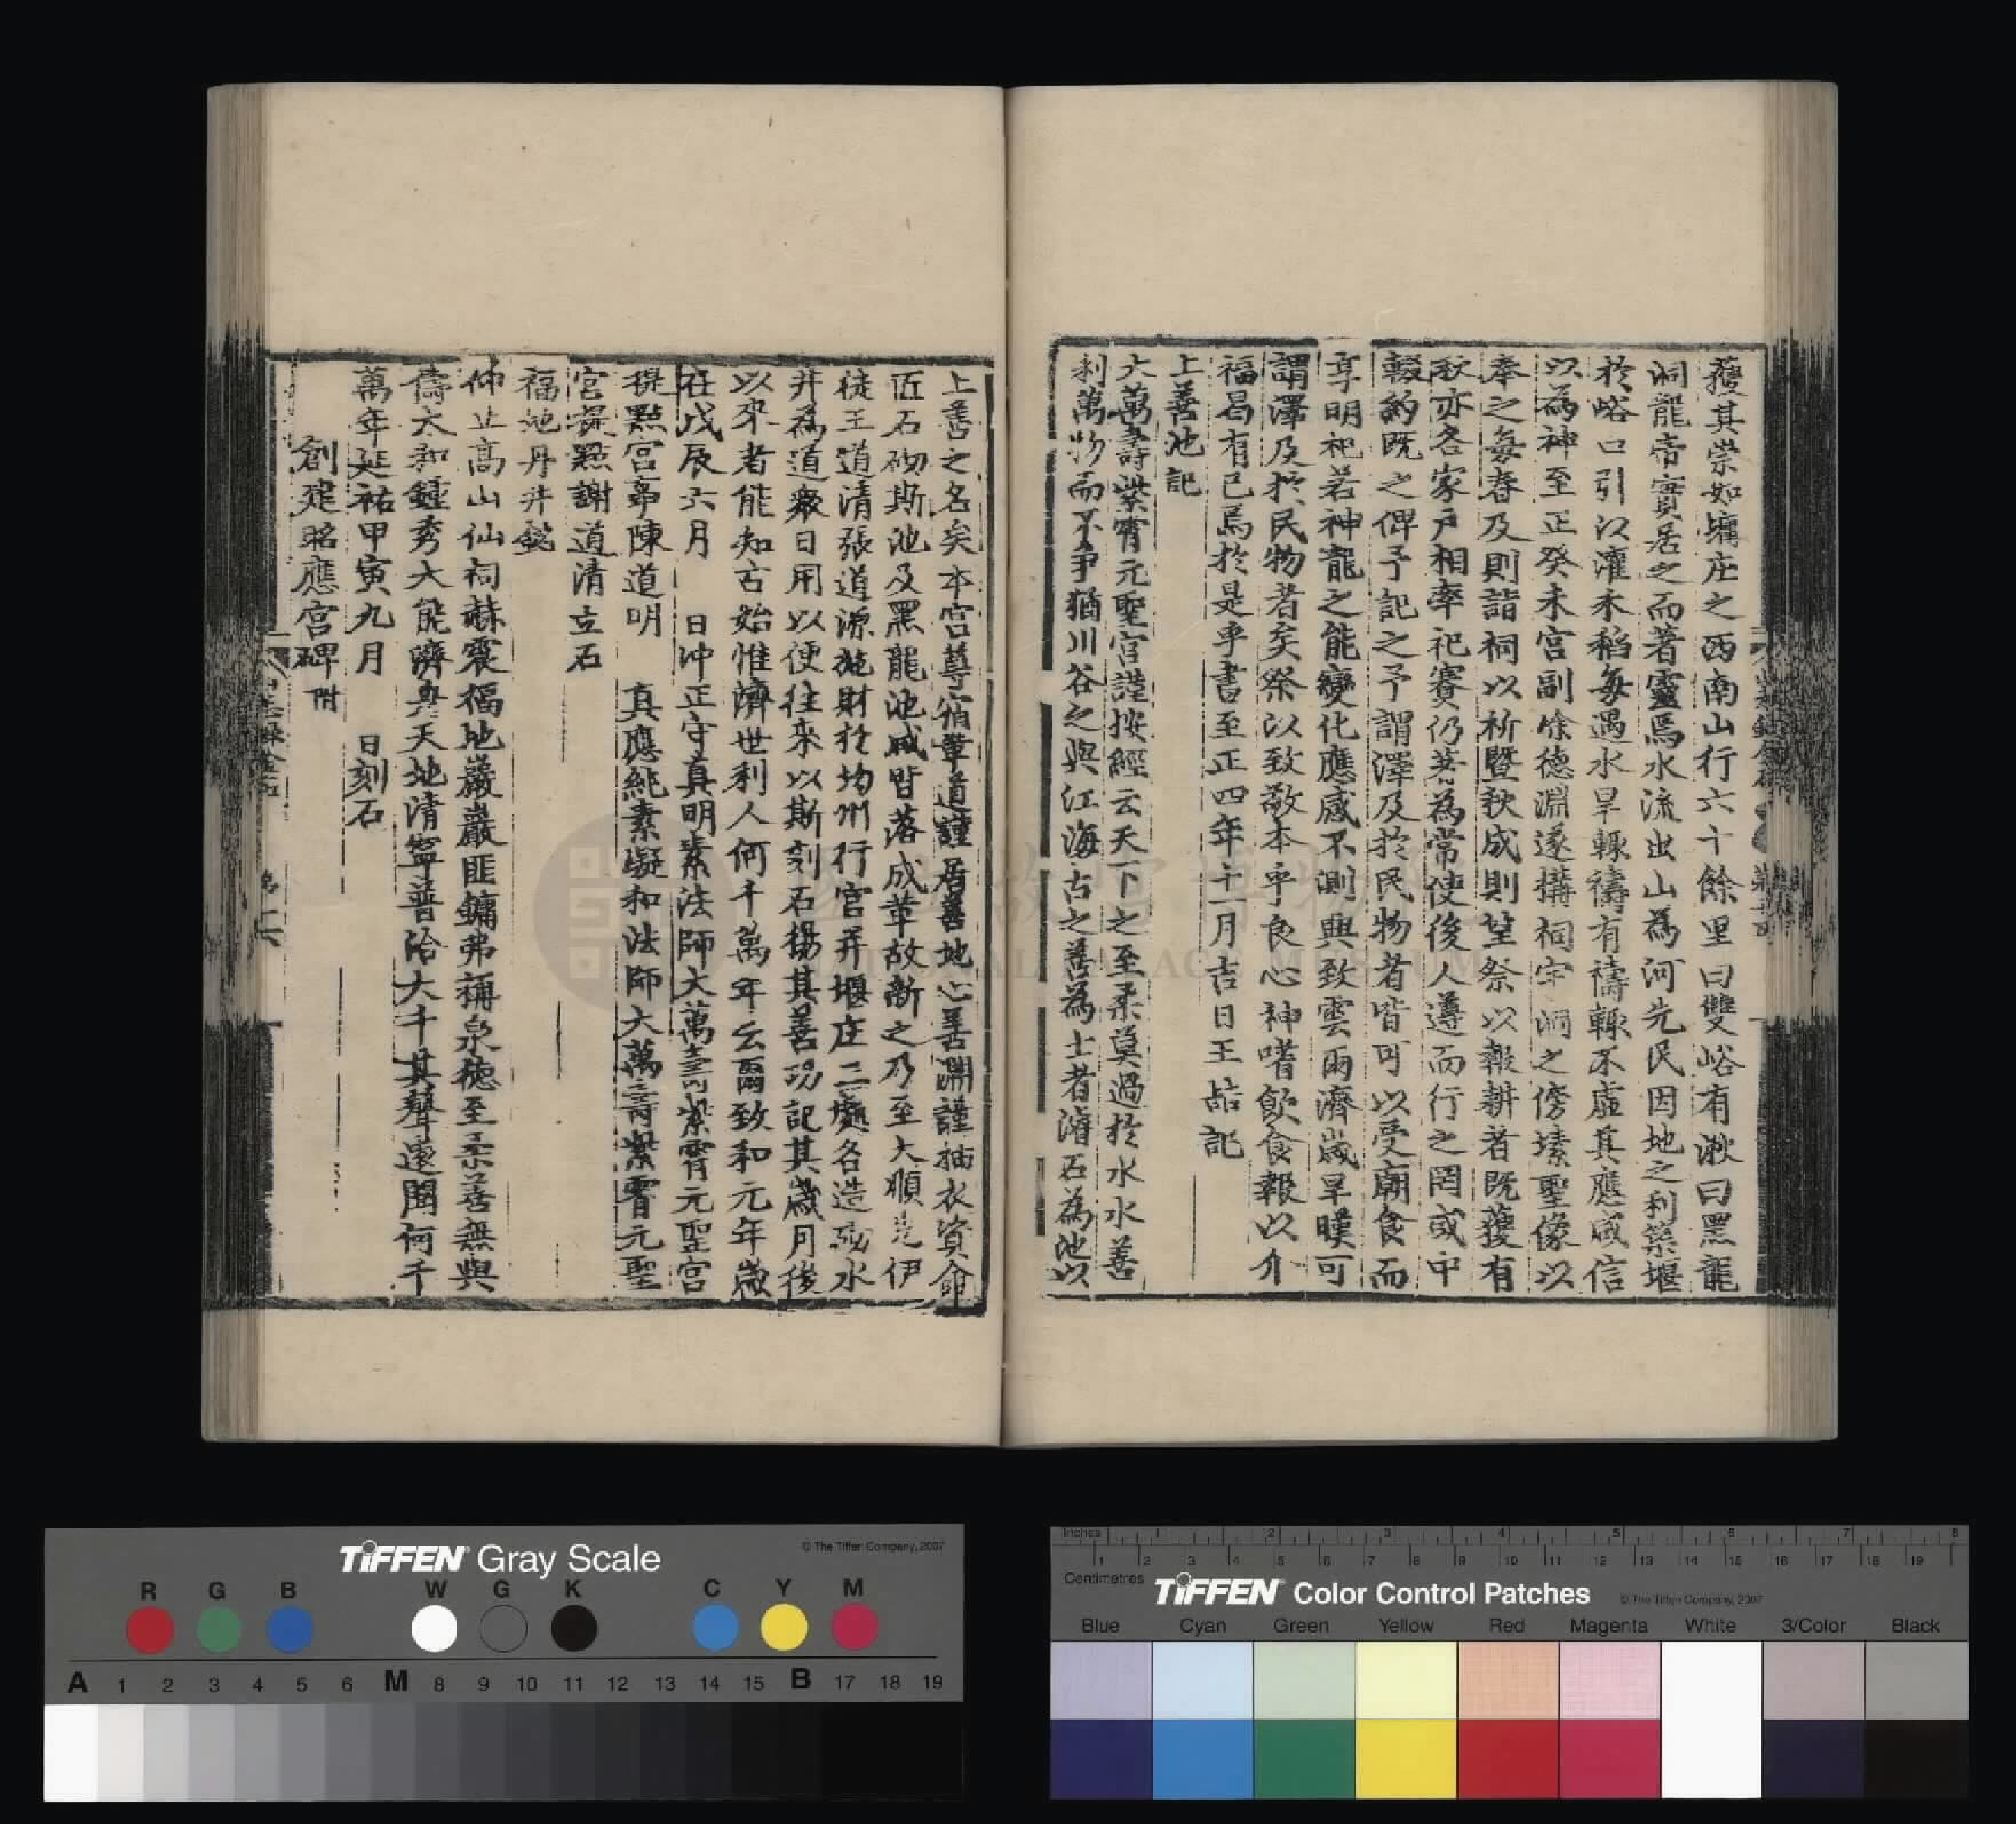 蓻其崇如墉庄之西南山行六十餘里曰雙峪有湫曰黑龍
洞龍帝實居之而著靈焉水流出山為河先民因地之利築堰
於峪口引以灌禾稻每遇水旱輒禱有禱輒不虛其應咸信
以為神至正癸未宮副徐德淵遂搆祠宇洞之傍塐聖像以
奉之每春及則詣祠以祈暨秋成則望祭以報耕者既蓻有
秋亦各家戶相率祀賽仍著為常使後人遵而行之罔或中
輟約既之俾予記之予謂澤及於民物者皆可以受廟食而
享明祀若神龍之能變化應感不測興致雲雨濟歲旱暵可
謂澤及於民物者矣祭以致敬本乎良心神嗜飲食報以介
福曷有已焉於是乎書至正四年十一月吉日王喆記
上善池記
大萬壽紫霄元聖宮謹按經云天下之至柔莫過於水水善
利萬物而不爭猶川谷之與江海古之善為士者濬石為池以
上善之名矣本宮尊宿單道謹居善地心善淵謹抽衣資命
匠石砌斯池及黑龍池咸皆落成革故新之乃至大順先伊
徒王道清張道源施財於均州行宮并堰庄二處各造砌水
井為道眾日用以便往來以斯刻石揚其善功記其歲月後
以來者能知古始惟濟世利人何千萬年云爾致和元年歲
在戊辰六月 日沖正守真明素法師大萬壽紫霄元聖宮
提點宮事陳道明 真應純素凝和法師大萬壽紫霄元聖
宮提點謝道清立石
福地丹井銘
仲止高山仙祠赫震福地巖巖匪鏞弗稱泉德至柔善無與
儔太和鍾秀大能濟與天地清寧普洽大千其聲遠聞何千
萬年延祐甲寅九月 日刻石
創建昭應宮碑附
國立故宮博物院
NATIONAL PALACE MUSEUM
TIFFEN Gray Scale
© The Tiffen Company, 2007
R G B W G K C Y M
A 1 2 3 4 5 6 M 8 9 10 11 12 13 14 15 B 17 18 19
Inches 1 2 3 4 5 6 7 8
1 2 3 4 5 6 7 8 9 10 11 12 13 14 15 16 17 18 19
Centimetres
TIFFEN Color Control Patches
© The Tiffen Company, 2007
Blue Cyan Green Yellow Red Magenta White 3/Color Black